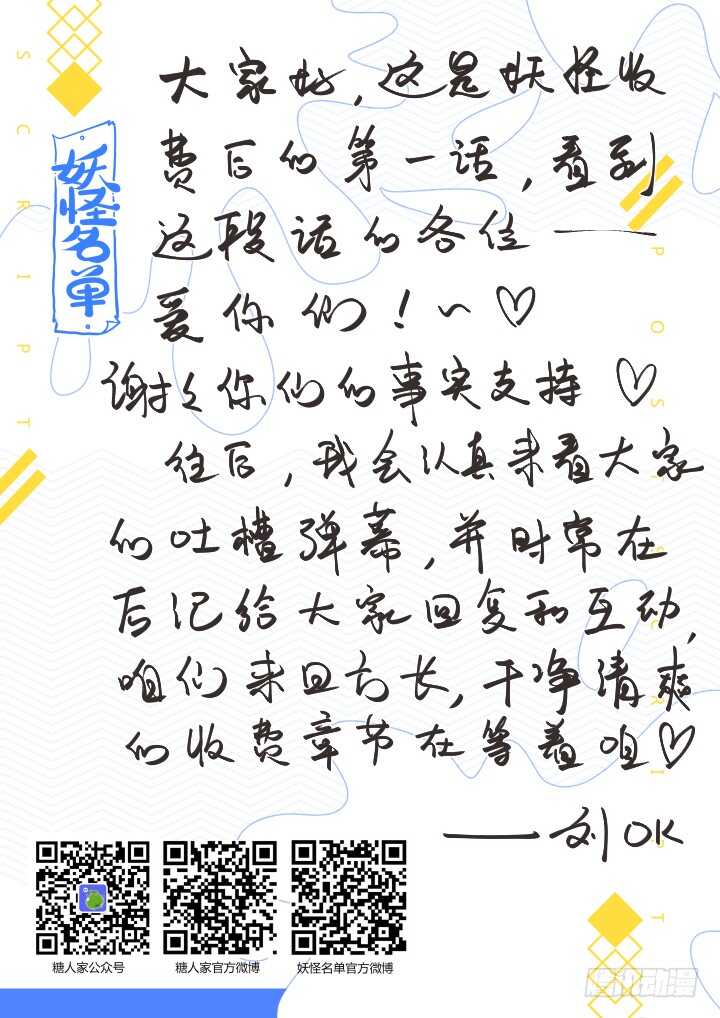 SCRIPT
妖怪名单
大家好，这是妖怪收
费后的第一话，看到
这段话的各位——
爱你们！~♡
谢谢你们的事实支持♡
往后，我会认真来看大家
的吐槽弹幕，并时常在
后记给大家回复和互动，
咱们来日方长，干净清爽
的收费章节在等着咱♡
——刘OK
POSTSCRIPT
糖人家公众号
糖人家官方微博
妖怪名单官方微博
腾讯动漫